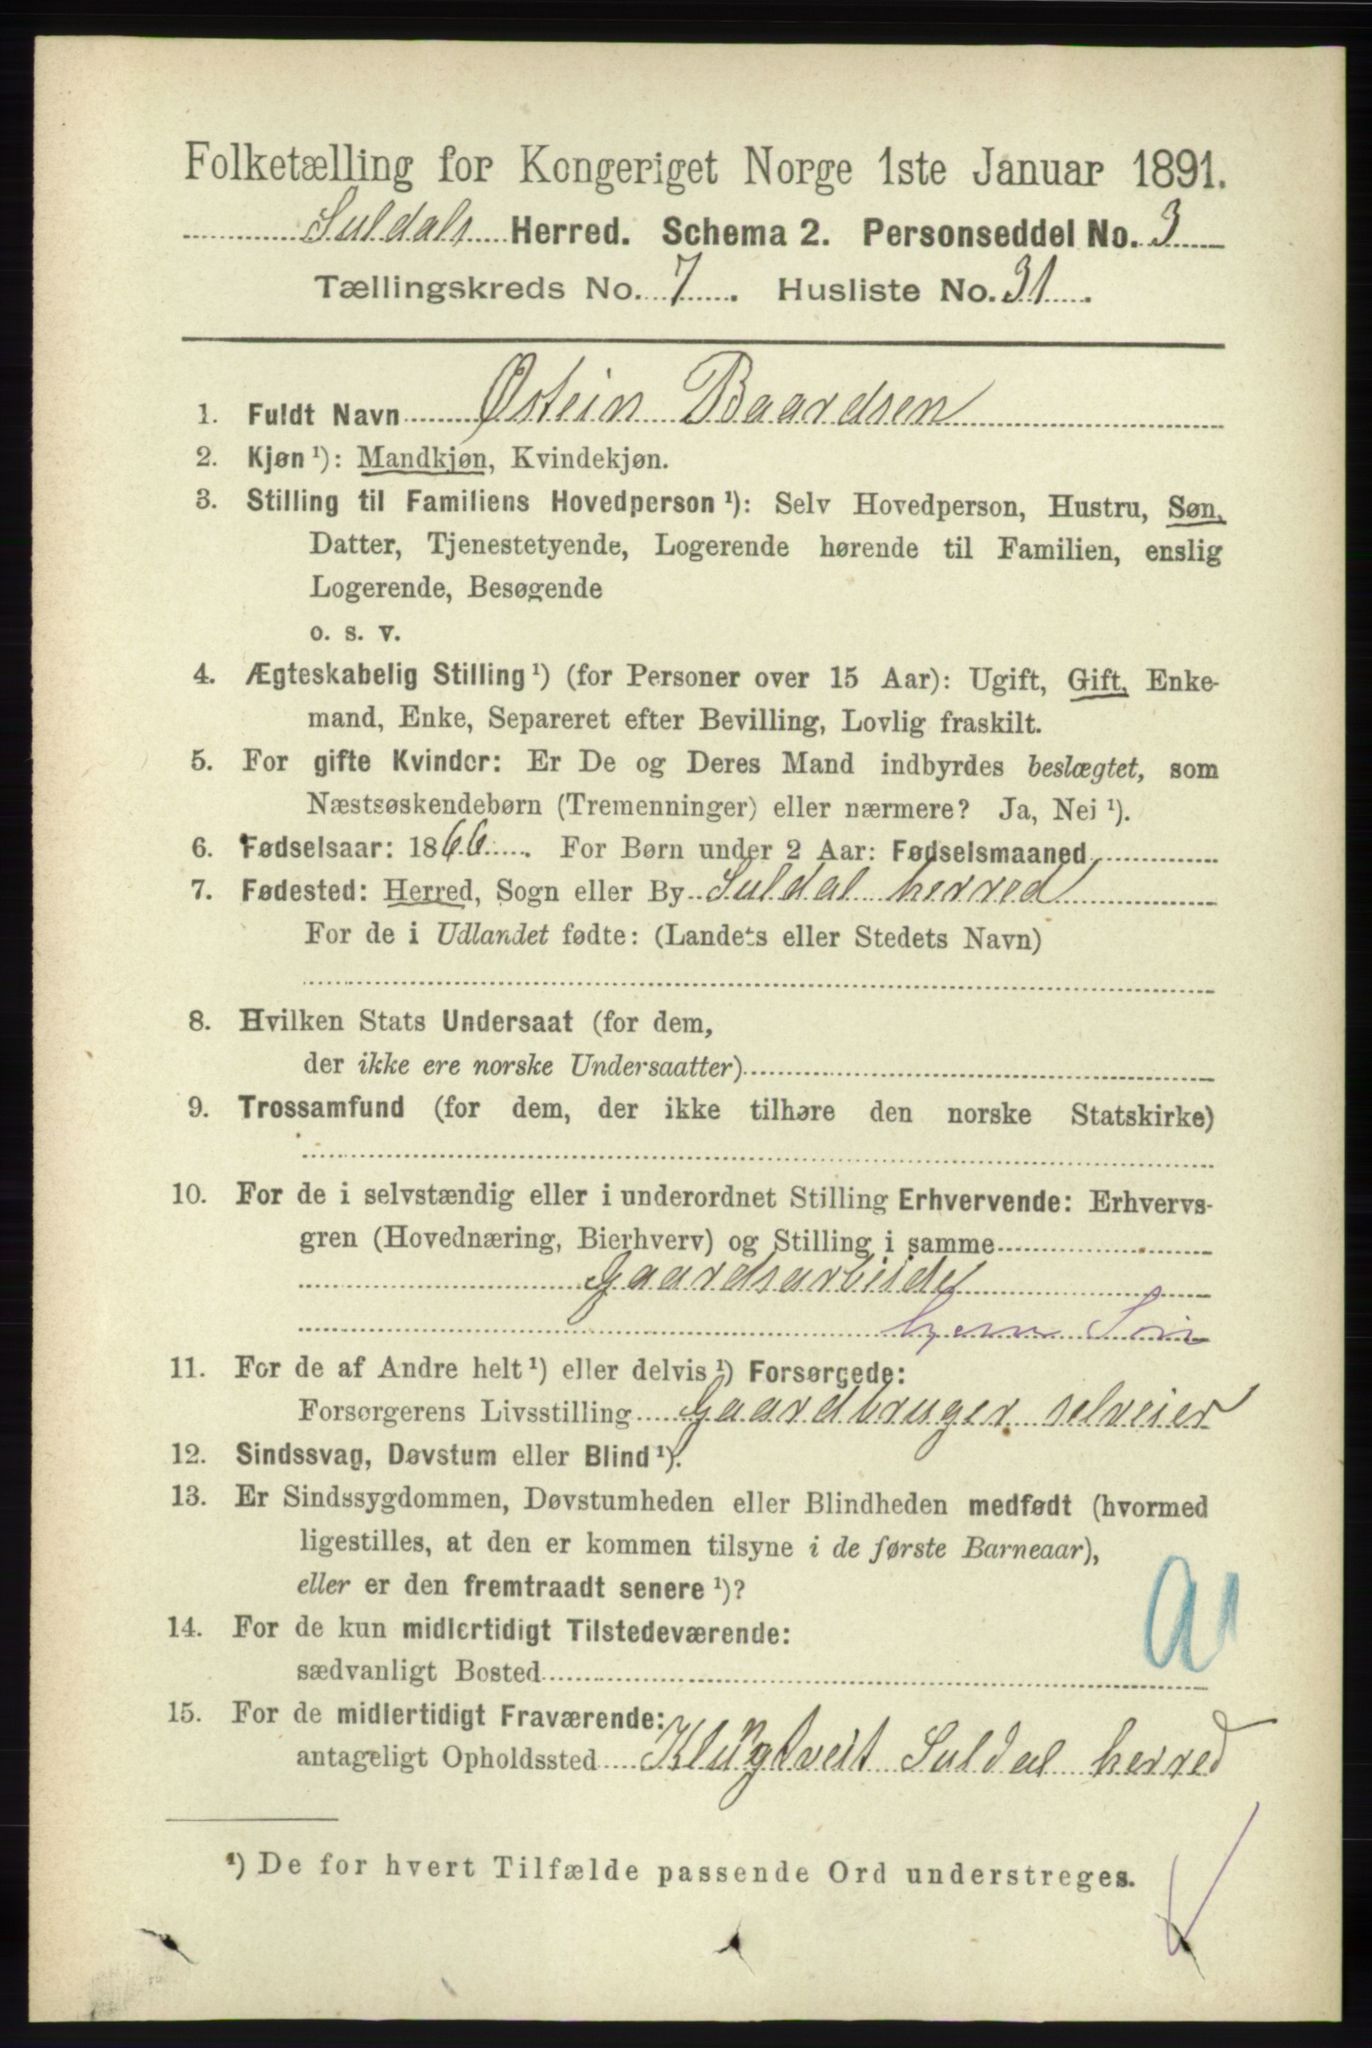 Folketælling for Kongeriget Norge 1ste Januar 1891.
Suldals Herred. Schema 2. Personseddel No. 3
Tællingskreds No. 7. Husliste No. 31.
1. Fuldt Navn Østein Baardsen
2. Kjøn ¹): Mandkjøn, Kvindekjøn.
3. Stilling til Familiens Hovedperson ¹): Selv Hovedperson, Hustru, Søn,
Datter, Tjenestetyende, Logerende hørende til Familien, enslig
Logerende, Besøgende
o. s. v.
4. Ægteskabelig Stilling ¹) (for Personer over 15 Aar): Ugift, Gift, Enke-
mand, Enke, Separeret efter Bevilling, Lovlig fraskilt.
5. For gifte Kvinder: Er De og Deres Mand indbyrdes beslægtet, som
Næstsøskendebørn (Tremenninger) eller nærmere? Ja, Nei ¹).
6. Fødselsaar: 1866. For Børn under 2 Aar: Fødselsmaaned
7. Fødested: Herred, Sogn eller By Suldal herred
For de i Udlandet fødte: (Landets eller Stedets Navn)
8. Hvilken Stats Undersaat (for dem,
der ikke ere norske Undersaatter)
9. Trossamfund (for dem, der ikke tilhøre den norske Statskirke)
10. For de i selvstændig eller i underordnet Stilling Erhvervende: Erhvervs-
gren (Hovednæring, Bierhverv) og Stilling i samme
Gaardsarbeide
hjem Søn
11. For de af Andre helt ¹) eller delvis ¹) Forsørgede:
Forsørgerens Livsstilling Gaardbruger selveier
12. Sindssvag, Døvstum eller Blind ¹).
13. Er Sindssygdommen, Døvstumheden eller Blindheden medfødt (hvormed
ligestilles, at den er kommen tilsyne i de første Barneaar),
eller er den fremtraadt senere ¹)?
14. For de kun midlertidigt Tilstedeværende:
sædvanligt Bosted
15. For de midlertidigt Fraværende:
antageligt Opholdssted Klungtveit Suldal herred
¹) De for hvert Tilfælde passende Ord understreges.